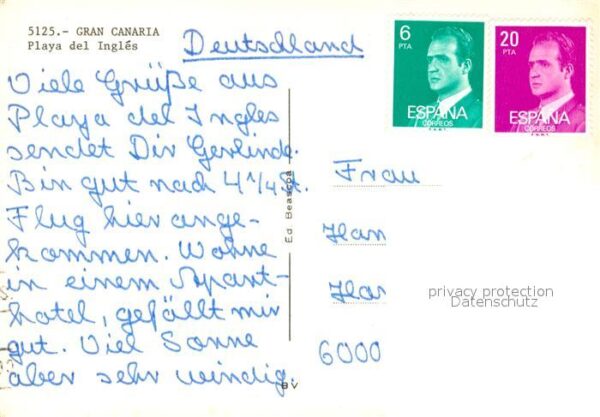 5125.- GRAN CANARIA
Playa del Inglés
Deutschland
6 PTA
ESPAÑA
CORREOS
20 PTA
ESPAÑA
CORREOS
Viele Grüße aus
Playa del Ingles
sendet Dir Gerlinde.
Bin gut nach 4 1/4 St.
Flug hier ange-
kommen. Wohne
in einem Apart-
hotel, gefällt mir
gut. Viel Sonne
aber sehr windig.
Ed. Beascoa
BV
Frau
Han
Har
6000
privacy protection
Datenschutz